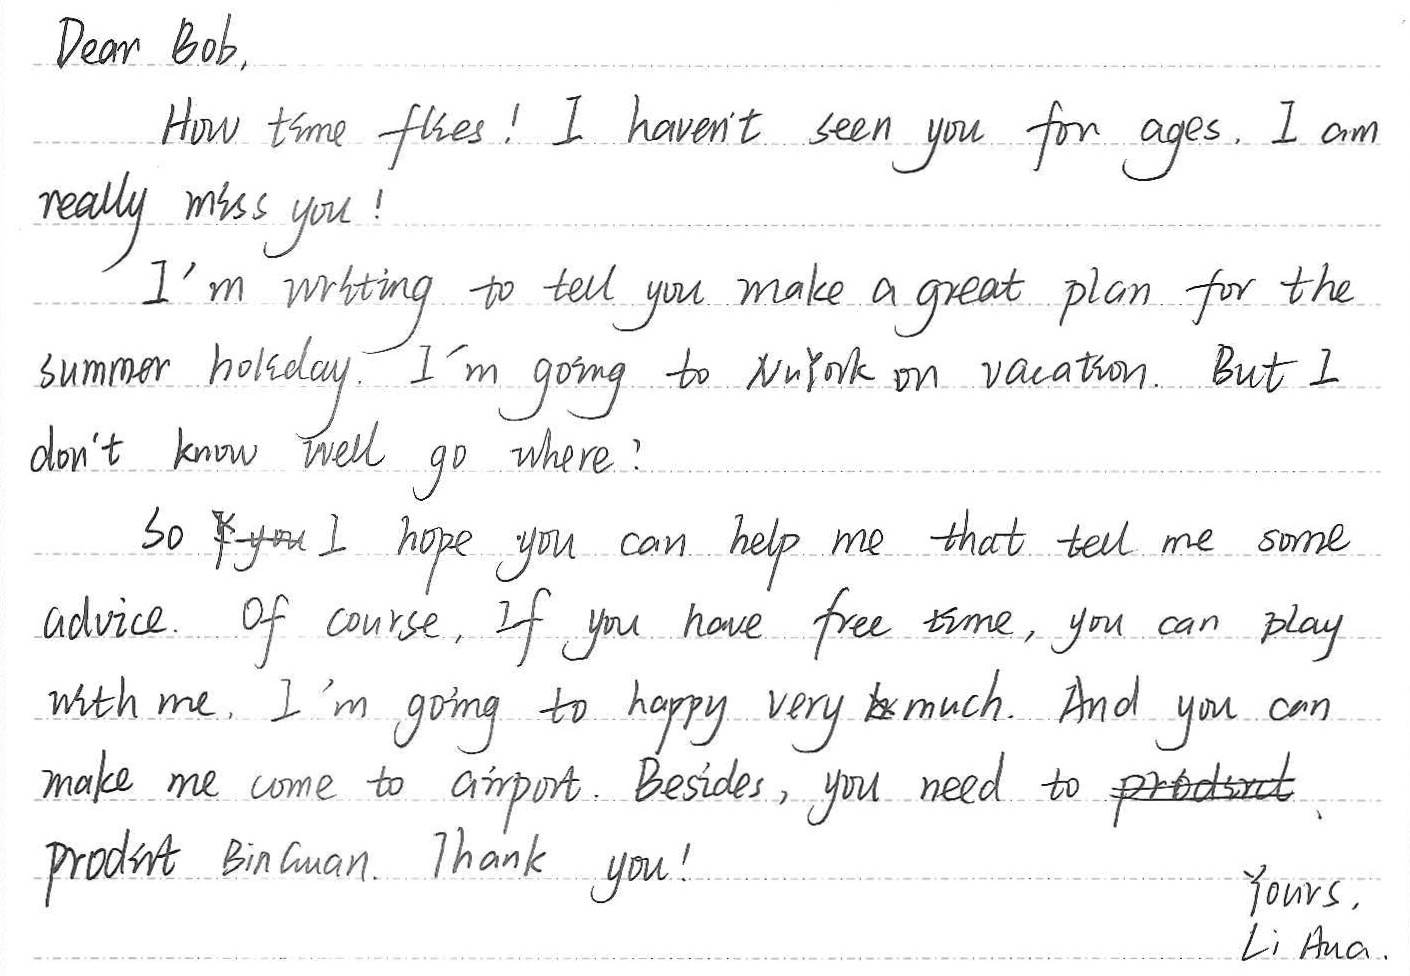 Dear Bob,
How time flies! I haven't seen you for ages. I am
really miss you!
I'm writing to tell you make a great plan for the
summer holiday. I'm going to NuYork on vacation. But I
don't know well go where?
So I hope you can help me that tell me some
advice. Of course, If you have free time, you can play
with me. I'm going to happy very much. And you can
make me come to airport. Besides, you need to
BinGuan. Thank you!
Yours,
Li Hua.